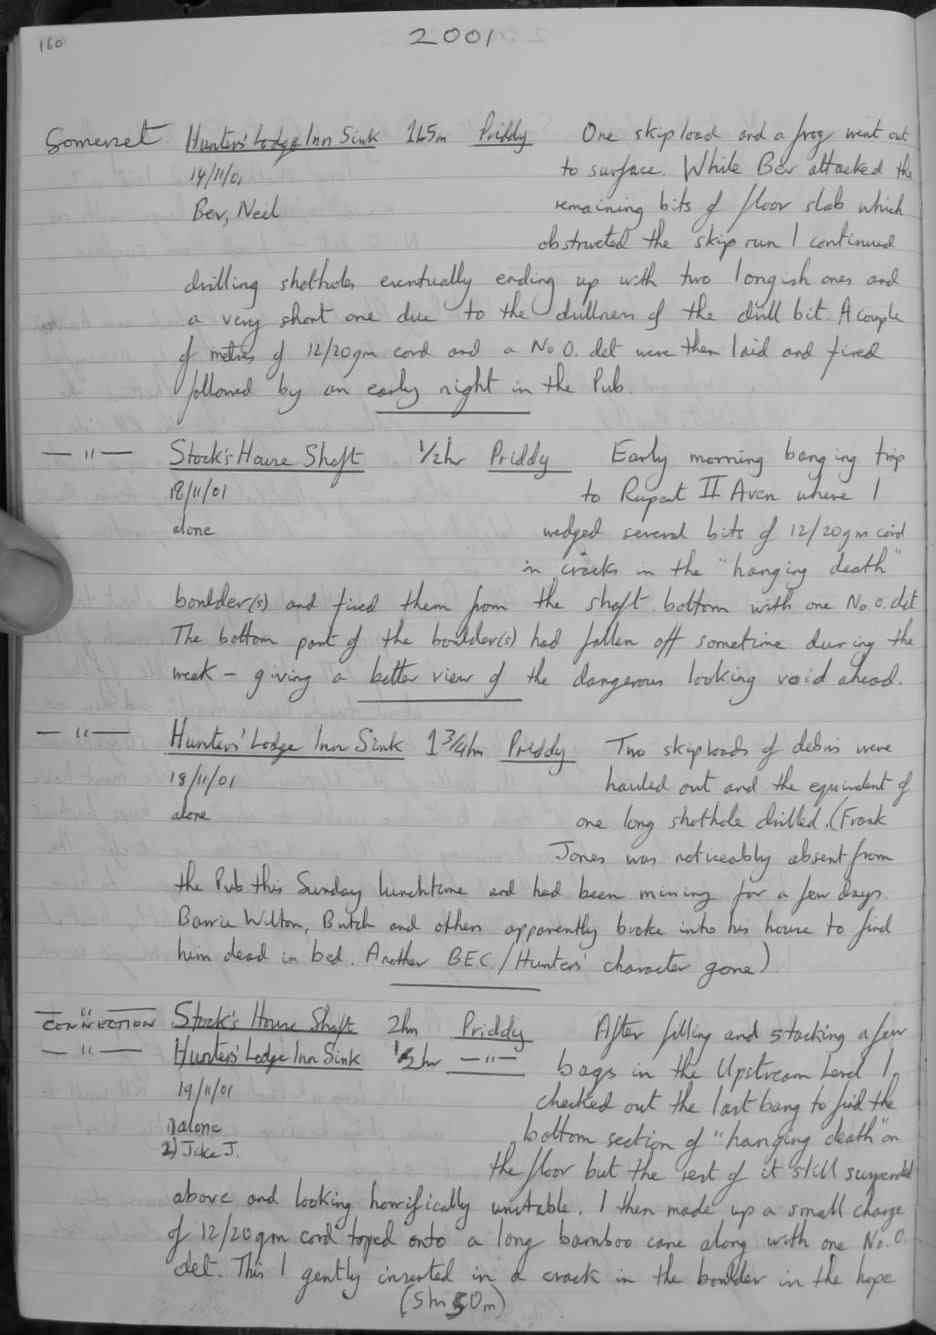 160
2001
Somerset Hunters' Lodge Inn Sink 145m Priddy One skipload and a frog went out
14/11/01 to surface. While Bev attacked the
Bev, Neil remaining bits of floor slab which
obstructed the skip run I continued
drilling shotholes eventually ending up with two longish ones and
a very short one due to the dullness of the drill bit. A couple
of metres of 12/20gm cord and a No 0. det were then laid and fired
followed by an early night in the Pub.
— " — Stock's House Shaft 1/2hr Priddy Early morning banging trip
18/11/01 to Rupert II Aven where I
alone wedged several bits of 12/20gm cord
in cracks in the "hanging death"
boulder(s) and fired them from the shaft bottom with one No. 0. det
The bottom part of the boulder(s) had fallen off sometime during the
week – giving a better view of the dangerous looking void ahead.
— " — Hunters' Lodge Inn Sink 1 3/4hrs Priddy Two skiploads of debris were
18/11/01 hauled out and the equivalent of
alone one long shothole drilled. (Frank
Jones was noticeably absent from
the Pub this Sunday lunchtime and had been missing for a few days.
Barrie Wilton, Butch and others apparently broke into his house to find
him dead in bed. Another BEC/Hunters' character gone)
— " — Stock's House Shaft 2hrs Priddy After filling and stacking a few
CONNECTION
— " — Hunters' Lodge Inn Sink hr — " — bags in the Upstream Level I
19/11/01 checked out the last bang to find the
1) alone bottom section of "hanging death" on
2) Jake J. the floor but the rest of it still suspended
above and looking horrifically unstable. I then made up a small charge
of 12/20gm cord taped onto a long bamboo cane along with one No. 0
det. This I gently inserted in a crack in the boulder in the hope
(5hrs 50m)